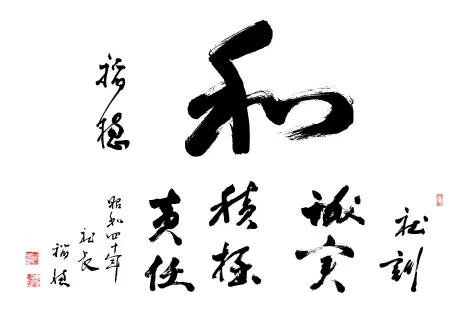 和
社訓
誠実
積極
責任
昭和四十年
社長